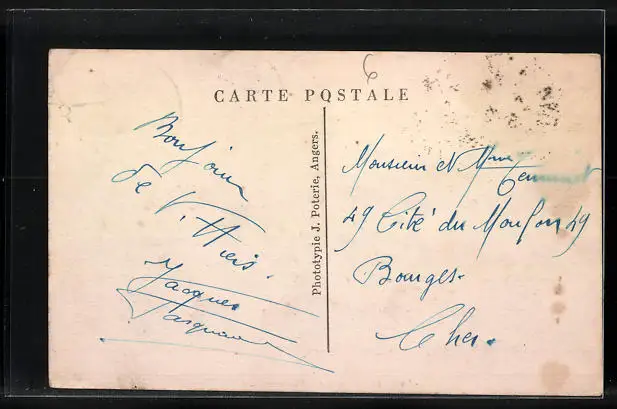 6
CARTE POSTALE
Bonjour
de Vihiers.
Jacques
Phototypie J. Poterie, Angers.
Monsieur et Mme
49 Cité du Moulon 49
Bourges.
Cher.